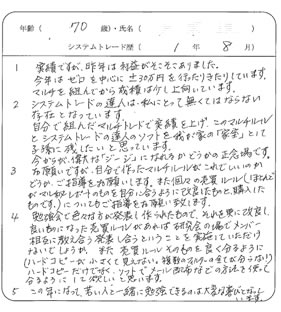 年齢（ 70 歳）・氏名（
システムトレード歴（ 1 年 8 月）
1 実績ですが、昨年は利益がそこそこありました。
今年はゼロを中心に±30万円を行たり来たりしています。
マルチを組んでから成績は少し上向いています。
2 システムトレードの達人は、私にとって無くてはならない
存在となっています。
自分で組んだマルチトレードで実績を上げ、このマルチルール
とシステムトレードの達人のソフトを我が家の“家宝”として
子孫に残したいと思っています。
今からが、偉大な“ジージ”になれるかどうかの正念場です。
3 お願いですが、自分で作ったマルチルールがこれでいいのか
どうか、ご指導をお願いします。また個々の売買ルール(ほとんど
がマルキからレポートのものを自分に合うように改良したものと、購入した
ものです。)についてもご指導をお願い致します。
4 勉強会で色々な方が発表し作られたもので、それを更に改良し
良いものになった売買ルールがあれば研究会の場でメンバー
相互に教え合う発表し合うということを実施していただけ
ないでしょうか。また売買ルールそのものを良く分るように
(ハードコピーが小さくて見えない。複数のフィルターの全てが分らない)
ハードコピーだけでなく、ソフトでメール配布などの方法を使して
分るようにして欲しいと思います。
5 この年になって、若い人と一緒に勉強できるのは大変な喜びでなりま
います。